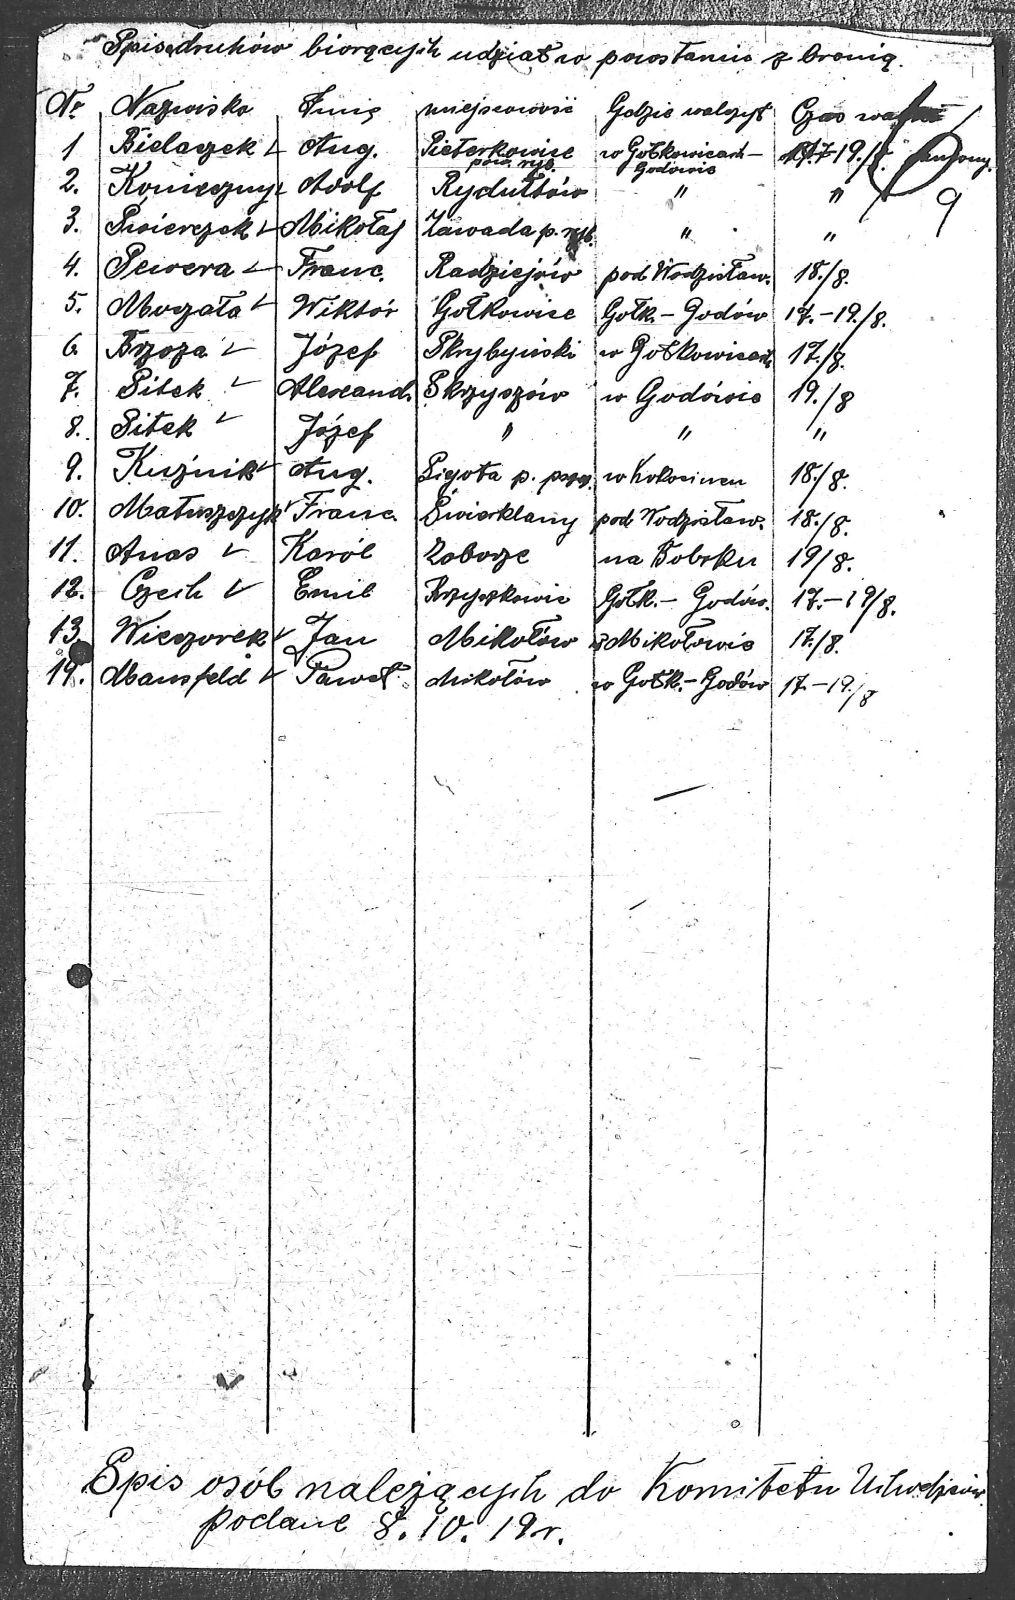 Spis druhów biorących udział w powstaniu z bronią.
No Nazwisko Imię miejscowość Gdzie walczył Czas
1 Bielaczek Aug. Pieterkowice w Gołkowicach - 17-19./8.
pow. ryb. Godowie
2. Konieczny Adolf Rydułtów " " 9
3. Świerczek Mikołaj Zawada p. ryb. " "
4. Sewera Franc. Radziejów pod Wodzisław. 18./8.
5. Mogzała Wiktór Gołkowice Gołk. - Godów 17.-19./8.
6 Brzoza Józef Skrzbyński w Gołkowicach 17./8.
7. Sitek Alexand. Skrzyszów w Godowie 19./8
8. Sitek Józef " " "
9. Kuźnik Aug. Ligota p. pszcz. w Kokoszycu 18./8.
10. Matuszczyk Franc. Świerklany pod Wodzisław. 18./8.
11. Anas Karól Zaborze na Bobrku 19/8.
12. Czech Emil Krzyżkowic Gołk. - Godów. 17.-19/8.
13. Wieczorek Jan Mikołów w Mikołowie 17./8.
14. Mansfeld Paweł Mikołów w Gołk. - Godów 17-19./8
Spis osób należących do Komitetu Uchodźców.
podane 8.10.19 r.